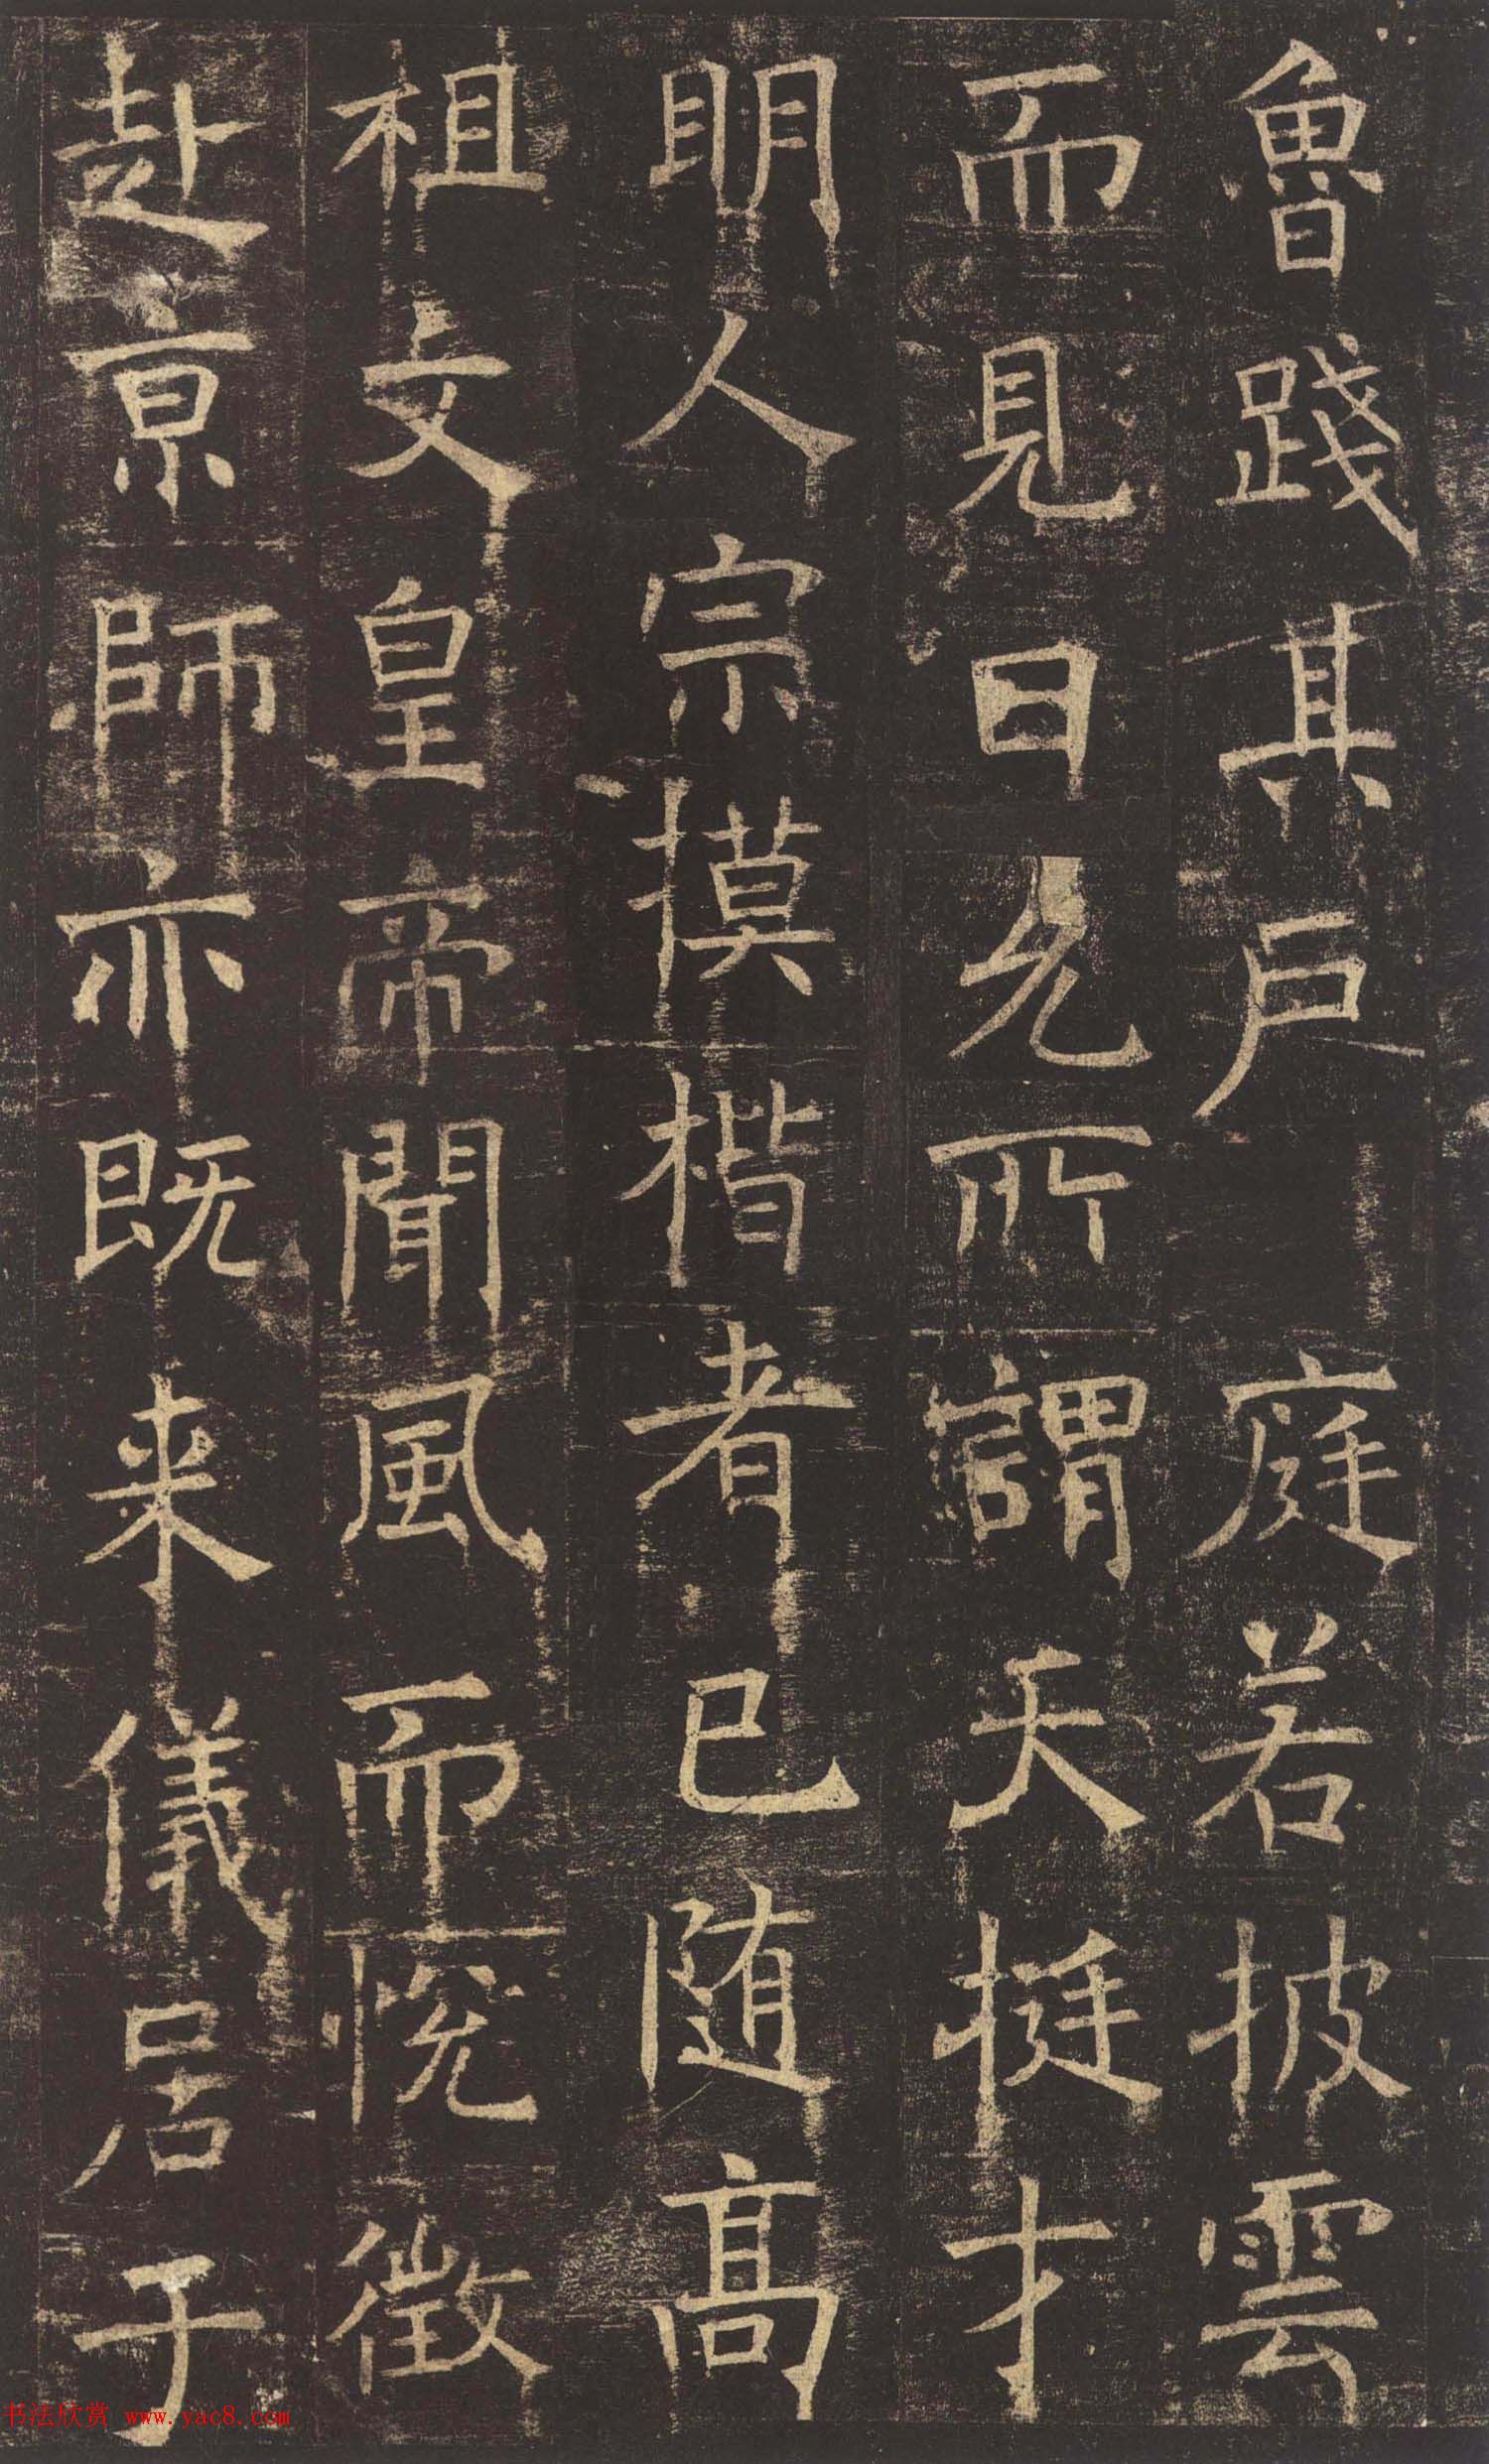 魯踐其戶庭若披雲
而見日見所謂天挺才
明人宗摸楷者已随高
祖文皇帝聞風而悅徵
赴京師亦既来儀居于
书法欣赏 www.yac8.com